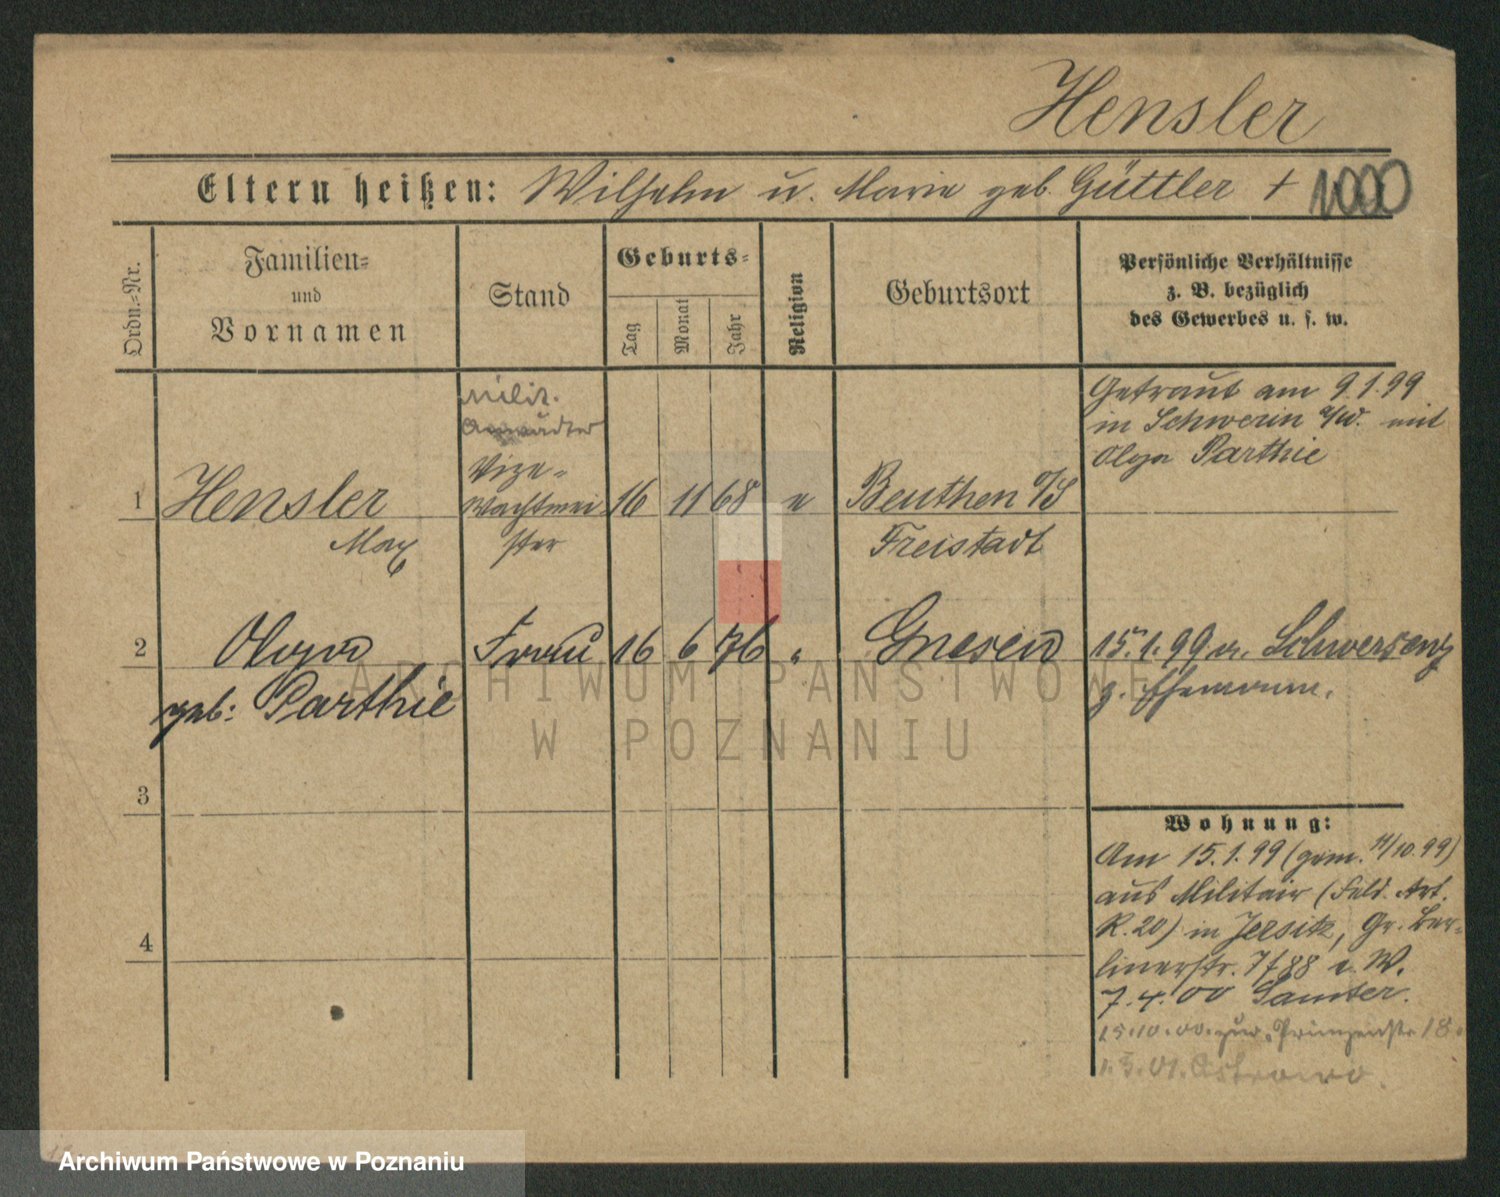 Hensler
Eltern heißen: Wilhelm u. Marie geb. Güttler + 1000
Ordn.=Nr.
Familien=
und
Vornamen
Stand
Geburts=
Tag
Monat
Jahr
Religion
Geburtsort
Persönliche Verhältnisse
z. B. bezüglich
des Gewerbes u. s. w.
1
Hensler
Max
Milit.
Anwärter
Vize=
wachtmei
ster
16 11 68 e
Beuthen O/S
Freistadt
Getraut am 9.1.99
in Schwerin a/W. mit
Olga Parthie
2
Olga
geb: Parthie
Frau
16 6 76 "
Gnesen
15.1.99 v. Schwersenz
z. Ehemann.
3
4
Wohnung:
Am 15.1.99 (gem. 11/10.99)
aus Militair (Feld. Art.
R. 20) in Jersitz, Gr. Ber=
linerstr. 7/88 e. W.
7.4.00 Samter.
15.10.00. zur. Prinzenstr 18.
1.3.01. Ostrowo.
ARCHIWUM PAŃSTWOWE
W POZNANIU
Archiwum Państwowe w Poznaniu